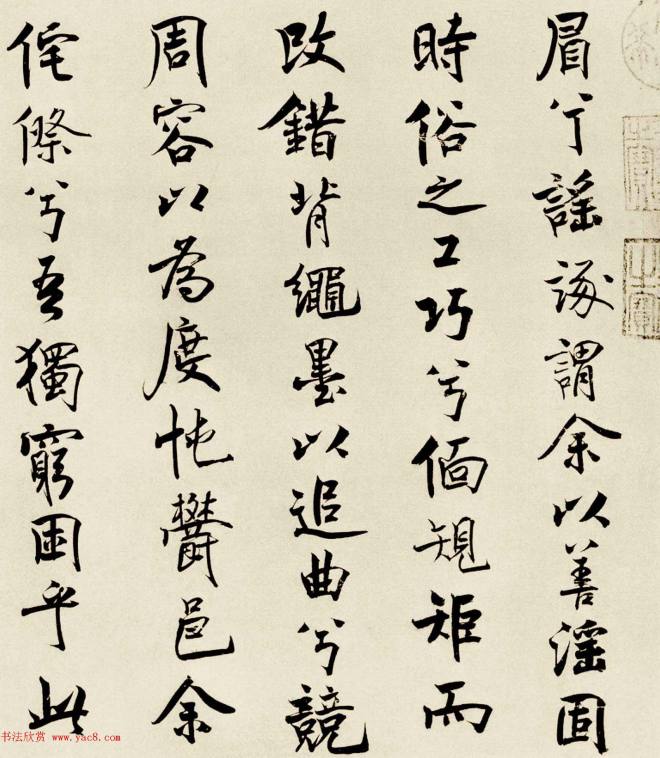 眉兮謠諑謂余以善淫固
時俗之工巧兮偭規矩而
改錯背繩墨以追曲兮競
周容以為度忳鬱邑余
侘傺兮吾獨窮困乎此
书法欣赏 www.yac8.com